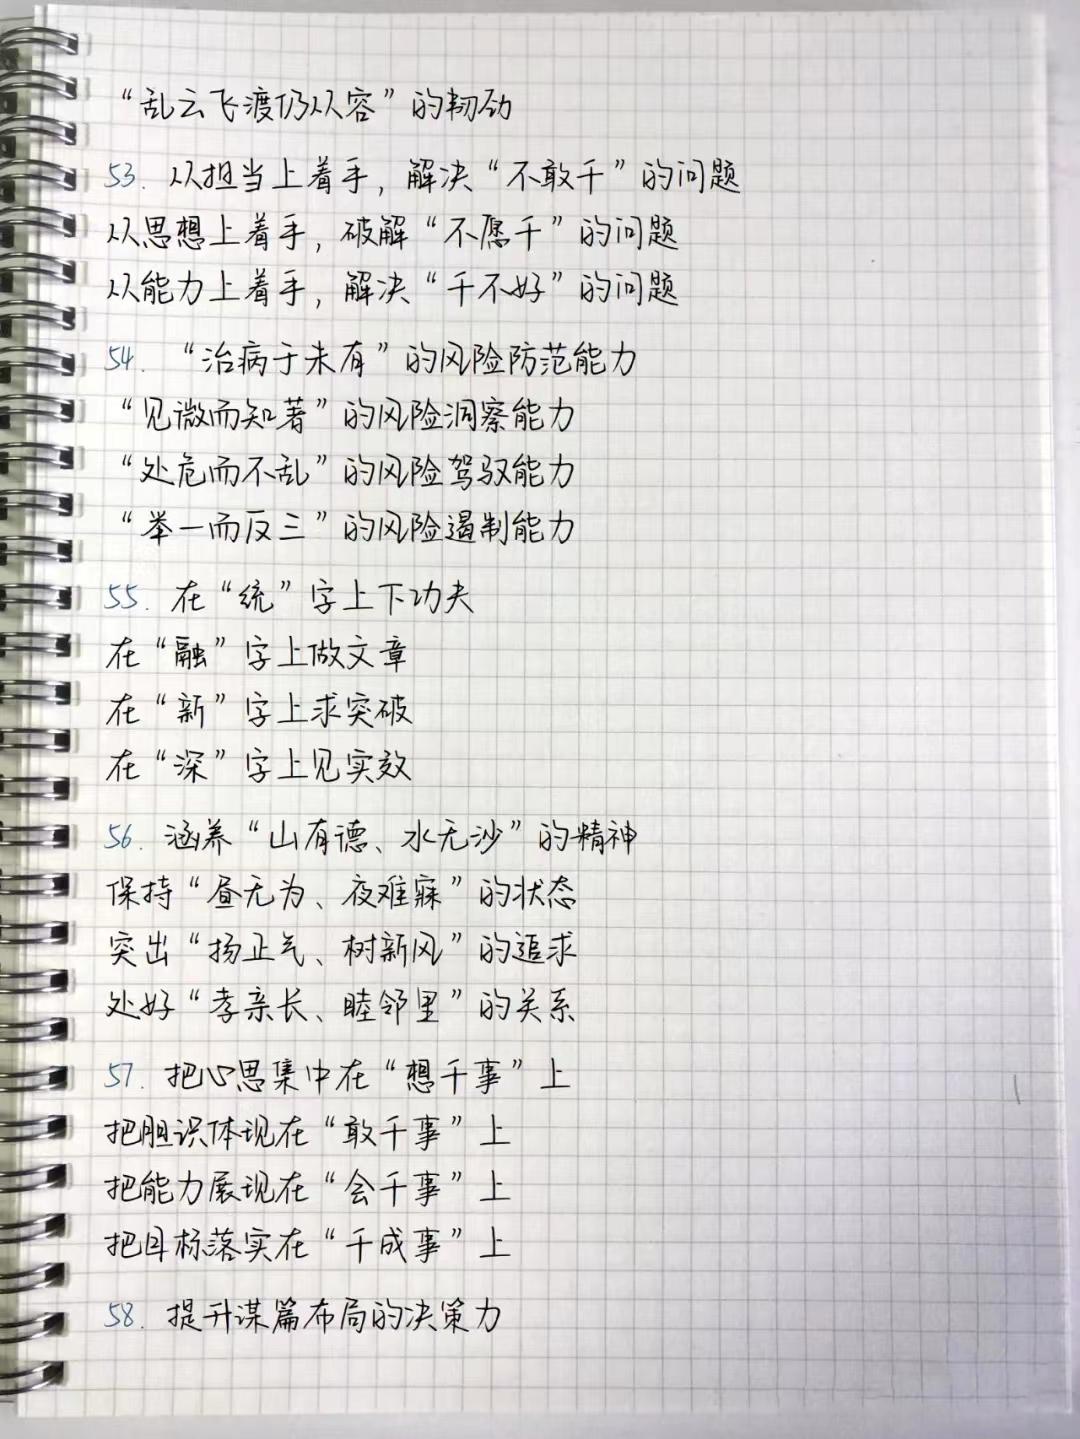 “乱云飞渡仍从容”的韧劲
53. 从担当上着手，解决“不敢干”的问题
从思想上着手，破解“不愿干”的问题
从能力上着手，解决“干不好”的问题
54. “治病于未有”的风险防范能力
“见微而知著”的风险洞察能力
“处危而不乱”的风险驾驭能力
“举一而反三”的风险遏制能力
55. 在“统”字上下功夫
在“融”字上做文章
在“新”字上求突破
在“深”字上见实效
56. 涵养“山有德、水无沙”的精神
保持“昼无为、夜难寐”的状态
突出“扬正气、树新风”的追求
处好“孝亲长、睦邻里”的关系
57. 把心思集中在“想干事”上
把胆识体现在“敢干事”上
把能力展现在“会干事”上
把目标落实在“干成事”上
58. 提升谋篇布局的决策力